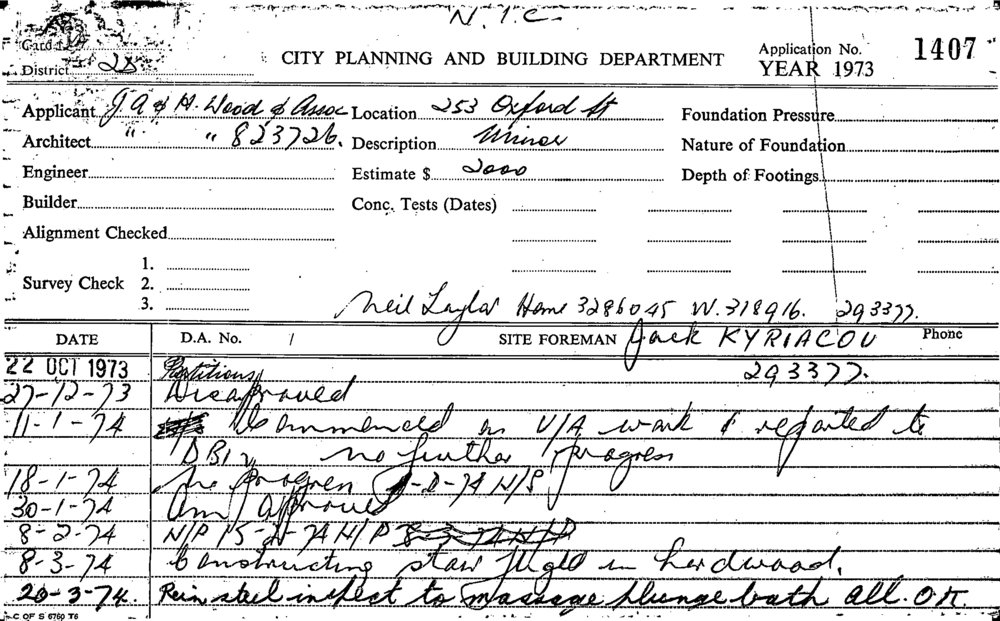 N.I.C.
Card
District 28
CITY PLANNING AND BUILDING DEPARTMENT
Application No. 1407
YEAR 1973
Applicant J. A & H. Wood & Assoc Location 253 Oxford St Foundation Pressure
Architect " " 823726. Description Minor Nature of Foundation
Engineer Estimate $ 2000 Depth of Footings
Builder Conc. Tests (Dates)
Alignment Checked
Survey Check 1.
2.
3.
Neil Taylor Home 3286045 W. 318916. 293377.
DATE D.A. No. / SITE FOREMAN Jack KYRIACOU Phone
22 OCT 1973 Partitions 293377.
27-12-73 Disapproved
11-1-74 Commenced on U/A work & reported to
no further progress
18-1-74 No progress N/P
30-1-74 Am/ approved
8-2-74 N/P 15-2-74 N/P
8-3-74 Constructing stair flight in hardwood.
20-3-74. Rein steel inspect to massage plunge bath all. OK.
C OF S 6760 T6